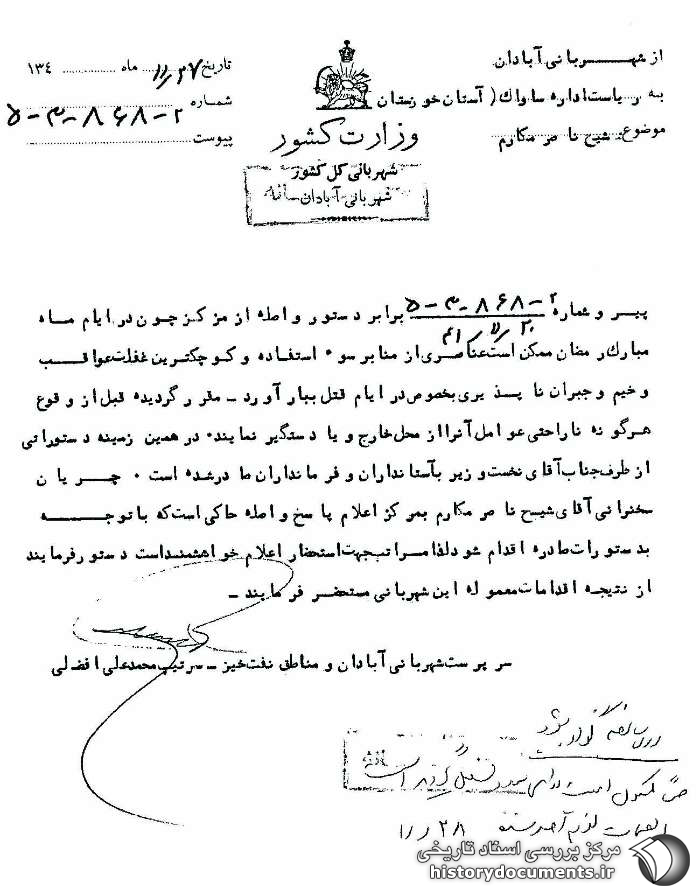 از شهربانی آبادان
به ریاست اداره ساواك ( آستان خوزستان
موضوع شیخ ناصر مکارم
تاریخ ۱۱/۲۷ ماه ۱۳۴
شماره ۲-۸۶۸-۳-۵
پیوست
وزارت کشور
شهربانی کل کشور
شهربانی آبادان
پیرو شماره ۲-۸۶۸-۳-۵ برابر دستور واصله از مرکز چون در ایام ماه
مبارك رمضان ممکن است عناصری از منابر سوء استفاده و کوچکترین غفلت عواقب
وخیم و جبران ناپذیری بخصوص در ایام قتل ببار آورد ـ مقرر گردیده قبل از وقوع
هرگونه ناراحتی عوامل آنرا از محل خارج و یا دستگیر نمایند۰ در همین زمینه دستوراتی
از طرف جناب آقای نخست وزیر بآستانداران و فرمانداران صادر شده است ۰ جریان
سخنرانی آقای شیخ ناصر مکارم بمرکز اعلام پاسخ واصله حاکی است که با توجه
بدستورات صادره اقدام شود لذا مراتب جهت استحضار اعلام خواهشمند است دستور فرمایند
از نتیجه اقدامات معموله این شهربانی مستحضر فرمایند ـ
سرپرست شهربانی آبادان و مناطق نفت خیز ـ سرتیپ محمدعلی افضلی
بشود
است
لازم ۱۱/۲۸
مرکز بررسی اسناد تاریخی
historydocuments.ir